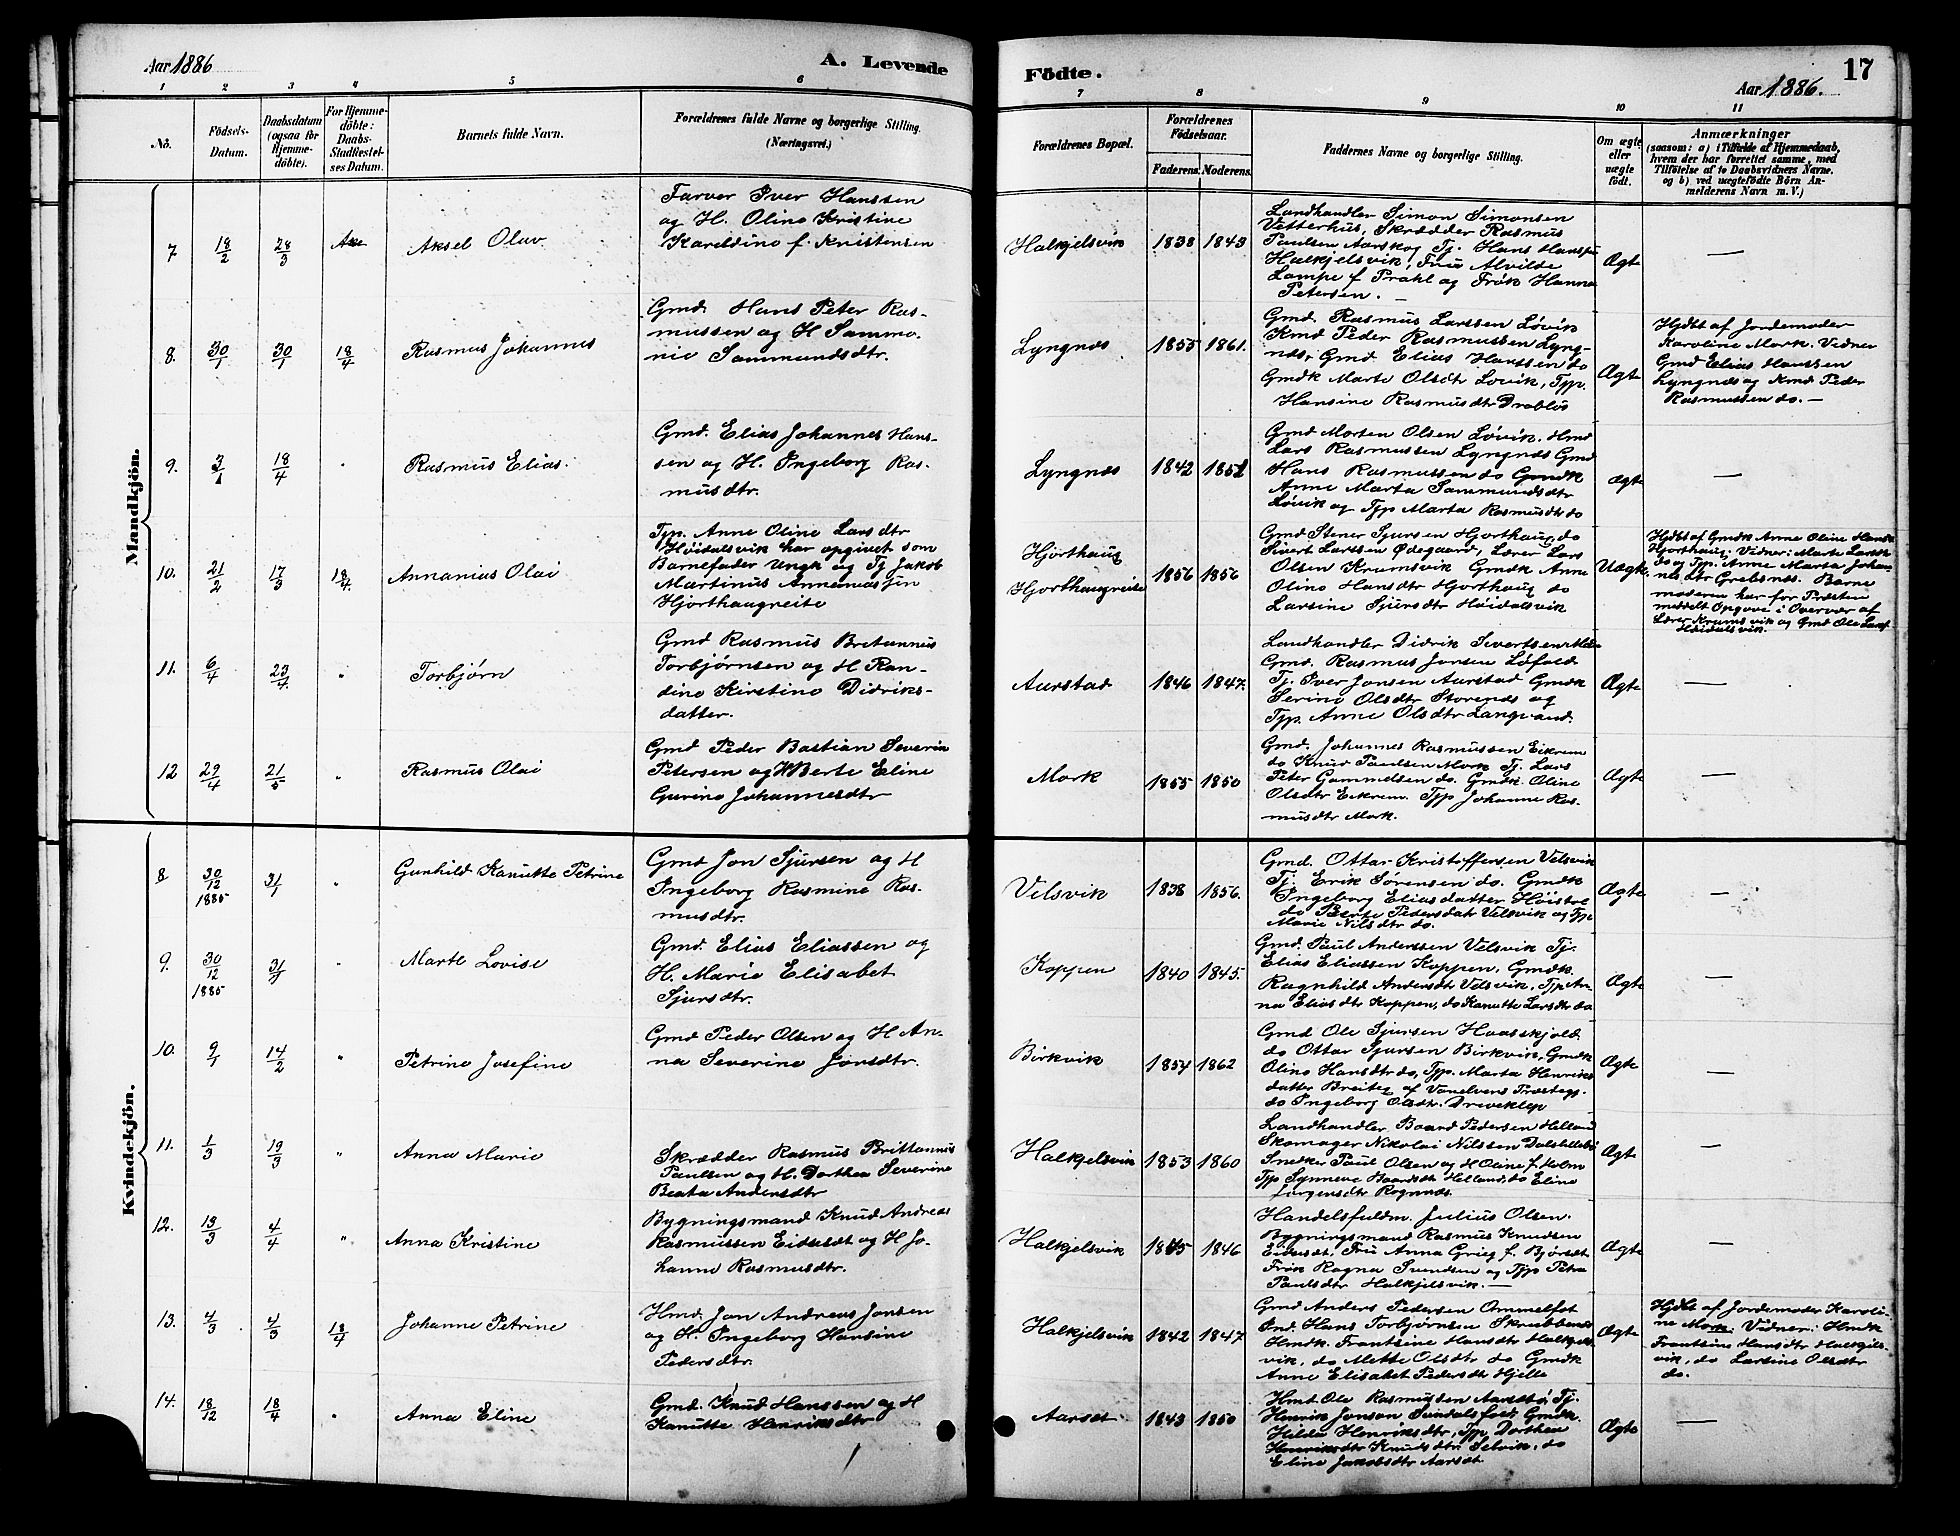 Aar 1886
A. Levende
Födte.
Aar 1886.
17
1 2 3 4 5 6 7 8 9 10 11
No.
Födsels-
Datum.
Daabsdatum
(ogsaa for
Hjemme-
döbte).
For Hjemme-
döbte:
Daabs-
Stadfæstel-
ses Datum.
Barnets fulde Navn.
Forældrenes fulde Navne og borgerlige Stilling.
(Næringsvei.)
Forældrenes Bopæl.
Forældrenes
Födselsaar.
Faderens. Moderens.
Faddernes Navne og borgerlige Stilling.
Om ægte
eller
uægte
födt.
Anmærkninger
(saasom: a) i Tilfælde af Hjemmedaab,
hvem der har forrettet samme, med
Tilföielse af to Daabsvidners Navne.
og b) ved uægtefödte Börn An-
melderens Navn m. V.)
Mandkjön.
7 18/2 28/3
Aksel Olav
Farver Iver Hanssen
og H. Oline Kristine
Kareldine f. Kristensen
Halkjelsvik
1838 1843
Landhandler Simon Simonsen
Vetterhus, Skrædder Rasmus
Paulsen Aarskog Tj. Hans Hanssen
Halkjelsvik, Fru Alvilde
Lampe f. Prahl og Frøk Hanna
Petersen. —
Ægte
—
8. 30/1 30/1 18/4
Rasmus Johannes
Gmd. Hans Peter Ras-
mussen og H Sammo-
nie Sammundsdtr.
Lyngnæs
1855 1861.
Gmd. Rasmus Larssen Løvik
Kmd Peder Rasmussen Lyng-
næs, Gmd Elias Hanssen do
Gmdk Marte Olsdtr Løvik, Tjp.
Hansine Rasmusdtr Drabløs
Ægte
Hjdbt af Jordemoder
Karoline Mork. Vidner
Gmd Elias Hanssen
Lyngnæs og Kmd Peder
Rasmussen do. —
9. 3/1 18/4 "
Rasmus Elias.
Gmd. Elias Johannes Hans-
sen og H. Ingeborg Ras-
musdtr.
Lyngnæs
1842 1851
Gmd Morten Olsen Løvik. Hmd
Lars Rasmussen Lyngnæs Gmd
Hans Rasmussen do Gmdk
Anne Marta Sammundsdtr
Løvik og Tjp Marta Rasmusdtr do
Ægte
—
10. 21/2 17/3 18/4.
Annanias Olai
Tjp. Anne Oline Larsdtr
Høidalsvik har opgivet som
Barnefader Ungk og Tj Jakob
Martinus Annaniassen
Hjorthaugreite
Hjorthaug
Hjorthaugreite
1856 1856
Gmd Stener Sjursen Hjorthaug, do
Sivert Larssen Ødegaard, Lærer Lars
Olsen Kramsvik Gmdk Anne
Oline Hansdtr Hjorthaug do
Larsine Sjursdtr Høidalsvik
Uægte.
Hjdbt af Gmdk Anne Oline Hansdtr
Hjorthaug; Vidner: Marte Larsdtr
do og Tjp. Anne Marta Johan-
nesdtr Grebsnæs. Barne
moderen har for Præsten
meddelt Opgave i Overvær af
Lærer Kramsvik og Gmd Ole Larss
Høidalsvik.
11. 6/4 23/4. "
Torbjørn
Gmd Rasmus Bretannus
Torbjørnsen og H Ran-
dine Kirstine Didriks-
datter.
Aurstad
1846 1847.
Landhandler Didrik Sivertsen
Gmd. Rasmus Jonsen Løfold
Tj. Iver Jonsen Aurstad Gmdk
Serine Olsdtr Storenæs og
Tjp. Anne Olsdtr Langvand.
Ægte
—
12 29/4 21/5 "
Rasmus Olai
Gmd Peder Bastian Severin
Petersen og H Berte Eline
Gurine Johannesdtr
Mork
1855 1850
Gmd. Johannes Rasmussen Eikrem
do Knud Paulsen Mork Tj. Lars
Peter Gammelsen do. Gmdk. Oline
Olsdtr Eikrem. Tjp Johanne Ras-
musdtr Mork.
Ægte
—
Kvindekjön.
8 30/12 1885 31/1 "
Gunhild Kanutte Petrine
Gmd Jon Sjursen og H
Ingeborg Rasmine Ras-
musdtr.
Velsvik
1838 1856.
Gmd. Ottar Kristoffersen Velsvik
Tj. Erik Sørensen do. Gmdk
Ingeborg Eliasdatter Høistøl
do Berte Pedersdatr Velsvik og Tjp
Marie Nilsdtr do.
Ægte
—
9. 30/12 1885 31/1 "
Marte Lovise
Gmd. Elias Eliassen og
H. Marie Elisabet
Sjursdtr.
Koppen
1840 1845.
Gmd. Paul Anderssen Velsvik Tj.
Elias Eliassen Koppen, Gmdk.
Ragnhild Andersdtr Velsvik, Tjp An-
na Eliasdtr Koppen, do Kanutte Larsdtr do
Ægte
—
10. 9/1 14/2 "
Petrine Josefine
Gmd Peder Olsen og H An-
na Severine Jonsdtr.
Birkvik
1854 1862
Gmd Ole Sjursen Haaskjold
do Ottar Sjursen Birkvik, Gmdk
Oline Hansdtr do, Tjp. Marta Henriks
datter Breiteg af Vanelvens Præstegj.
do Ingeborg Olsdtr. Dreveklep
Ægte
—
11. 1/3 19/3 "
Anna Marie
Skrædder Rasmus Brittannus
Paulsen og H. Dorthea Severine
Beata Andersdtr
Halkjelsvik
1853 1860
Landhandler Baard Pedersen Helland
Skomager Nikolai Nilssen
Snedker Paul Olsen og H Oline f. Holm
Tjp Synneve Baardsdtr Helland, do Eline
Jørgensdtr Ragnnæs.
Ægte
—
12. 13/3 4/4 "
Anna Kristine
Bygningsmand Knud Andreas
Rasmussen Eidsedt og H Jo-
hanne Rasmusdtr.
Halkjelsvik
1845 1846
Handelsfuldm. Julius Olsen.
Bygningsmand Rasmus Knudsen
Eidsedt, Fru Anna Grieg f. Bjørsdt
Frøk Ragna Svendsen og Tjp Petra
Paulsdtr Halkjelsvik. —
Ægte
—
13. 4/3 4/3 18/4
Johanne Petrine
Hmd. Jon Andreas Jonsen
og H. Ingeborg Hansine
Pedersdtr.
Halkjelsvik
1842 1847
Gmd Anders Pedersen Ommelfot
Ind. Hans Torbjørnsen
Hmdk. Frantsine Hansdtr Halkjels-
vik, do Mette Olsdtr do Gmdk
Anne Elisabet Pedersdtr Hjelle
Ægte
Hjdbt af Jordemoder Karoli-
ne Mork. Vidner: Hmdk
Frantsine Hansdtr Halkjels-
vik, do Larsine Olsdtr
do.
14. 18/12 18/4 "
Anna Eline
Gmd. Knud Hanssen og H
Kanutte Henriksdtr
Aarset
1843 1850
Hmd. Ole Rasmussen Aarsetbø, Tj.
Henrik Jonson Sundalsfoet, Gmdk
Hilda Henriksdtr, Tjp Dorthea
Henriksdtr Knudsdtr Selvik, do
Eline Jakobsdtr Aarset.
Ægte
—